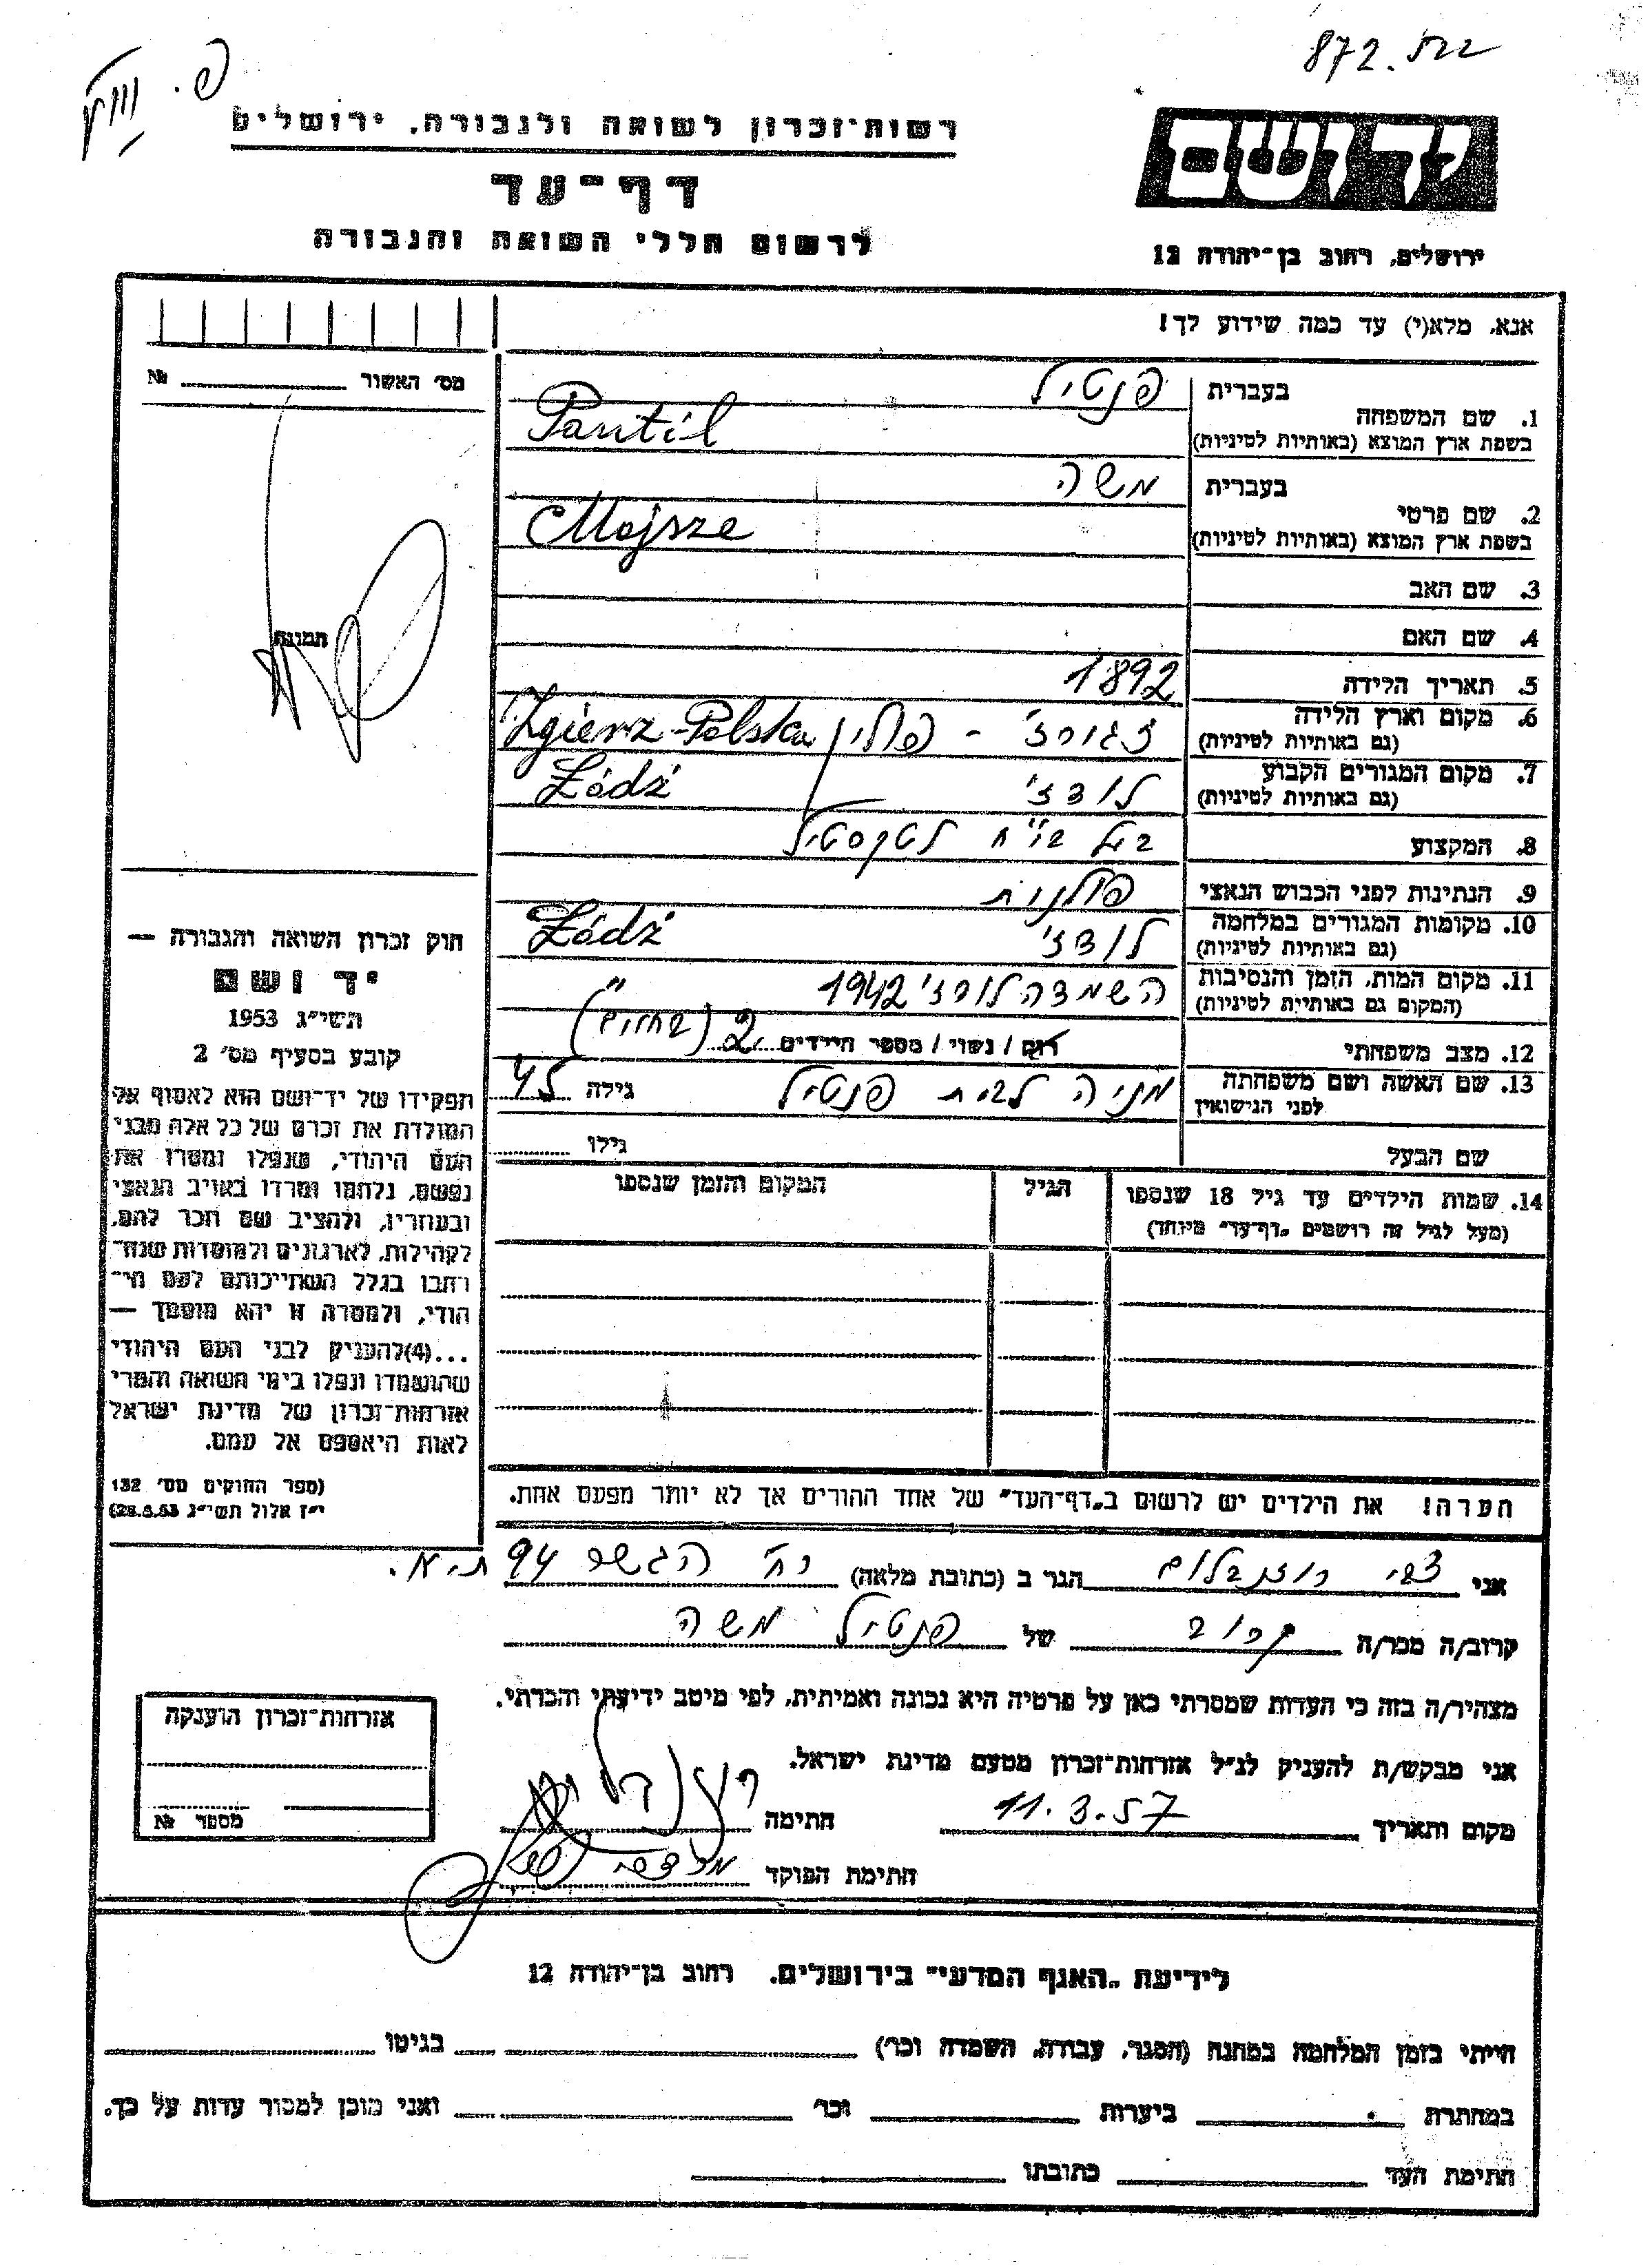 872.
רשות־זכרון לשואה ולגבורה, ירושלים
דף־עד
לרשום חללי השואה והגבורה
יד ושם
ירושלים, רחוב בן־יהודה 12
אנא, מלא(י) עד כמה שידוע לך!
מס׳ האשור № ______
תמונה
1. שם המשפחה
בעברית פנטיל
בשפת ארץ המוצא (באותיות לטיניות) Pantil
2. שם פרטי
בעברית משה
בשפת ארץ המוצא (באותיות לטיניות) Mojsze
3. שם האב
4. שם האם
5. תאריך הלידה 1892
6. מקום וארץ הלידה זגורז׳ - פולין Zgierz-Polska
(גם באותיות לטיניות)
7. מקום המגורים הקבוע לודז׳ Łódź
(גם באותיות לטיניות)
8. המקצוע בעל בי״ח לטקסטיל
9. הנתינות לפני הכבוש הנאצי פולנית
10. מקומות המגורים במלחמה לודז׳ Łódź
(גם באותיות לטיניות)
11. מקום המות, הזמן והנסיבות השמדה לודז׳ 1942
(המקום גם באותיות לטיניות)
12. מצב משפחתי רווק / נשוי / מספר הילדים 2
13. שם האשה ושם משפחתה מניה לבית פנטיל גילה 45
לפני הנישואין
שם הבעל גילו
14. שמות הילדים עד גיל 18 שנספו הגיל המקום והזמן שנספו
(מעל לגיל זה רושמים „דף־עד״ מיוחד)
חוק זכרון השואה והגבורה —
יד ושם
תשי״ג 1953
קובע בסעיף מס׳ 2
תפקידו של יד־ושם הוא לאסוף אל
המולדת את זכרם של כל אלה מבני
העם היהודי, שנפלו ומסרו את
נפשם, נלחמו ומרדו באויב הנאצי
ובעוזריו, ולהציב שם וזכר להם,
לקהילות, לארגונים ולמוסדות שנח־
רבו בגלל השתייכותם לעם הי־
הודי, ולמטרה זו יהא מוסמך —
...(4)להעניק לבני העם היהודי
שהושמדו ונפלו בימי השואה והמרי
אזרחות־זכרון של מדינת ישראל
לאות היאספם אל עמם.
(ספר החוקים מס׳ 132
י״ז אלול תשי״ג 28.8.53)
הערה! את הילדים יש לרשום ב„דף־העד״ של אחד ההורים אך לא יותר מפעם אחת.
אני צבי רוזנבלום הגר ב (כתובת מלאה) רח׳ הגשר 94 ת.א.
קרוב/ה מכר/ה קרוב של פנטיל משה
מצהיר/ה בזה כי העדות שמסרתי כאן על פרטיה היא נכונה ואמיתית, לפי מיטב ידיעתי והכרתי.
אני מבקש/ת להעניק לנ״ל אזרחות־זכרון מטעם מדינת ישראל.
מקום ותאריך 11.3.57 חתימה
חתימת הפוקד
אזרחות־זכרון הוענקה
מספר №
לידיעת „האגף המדעי״ בירושלים. רחוב בן־יהודה 12
הייתי בזמן המלחמה במחנה (הסגר, עבודה, השמדה וכר׳) ______ בגיטו ______
במחתרת ______ ביערות ______ וכר׳ ______ ואני מוכן למסור עדות על כך.
חתימת העד ______ כתובתו ______